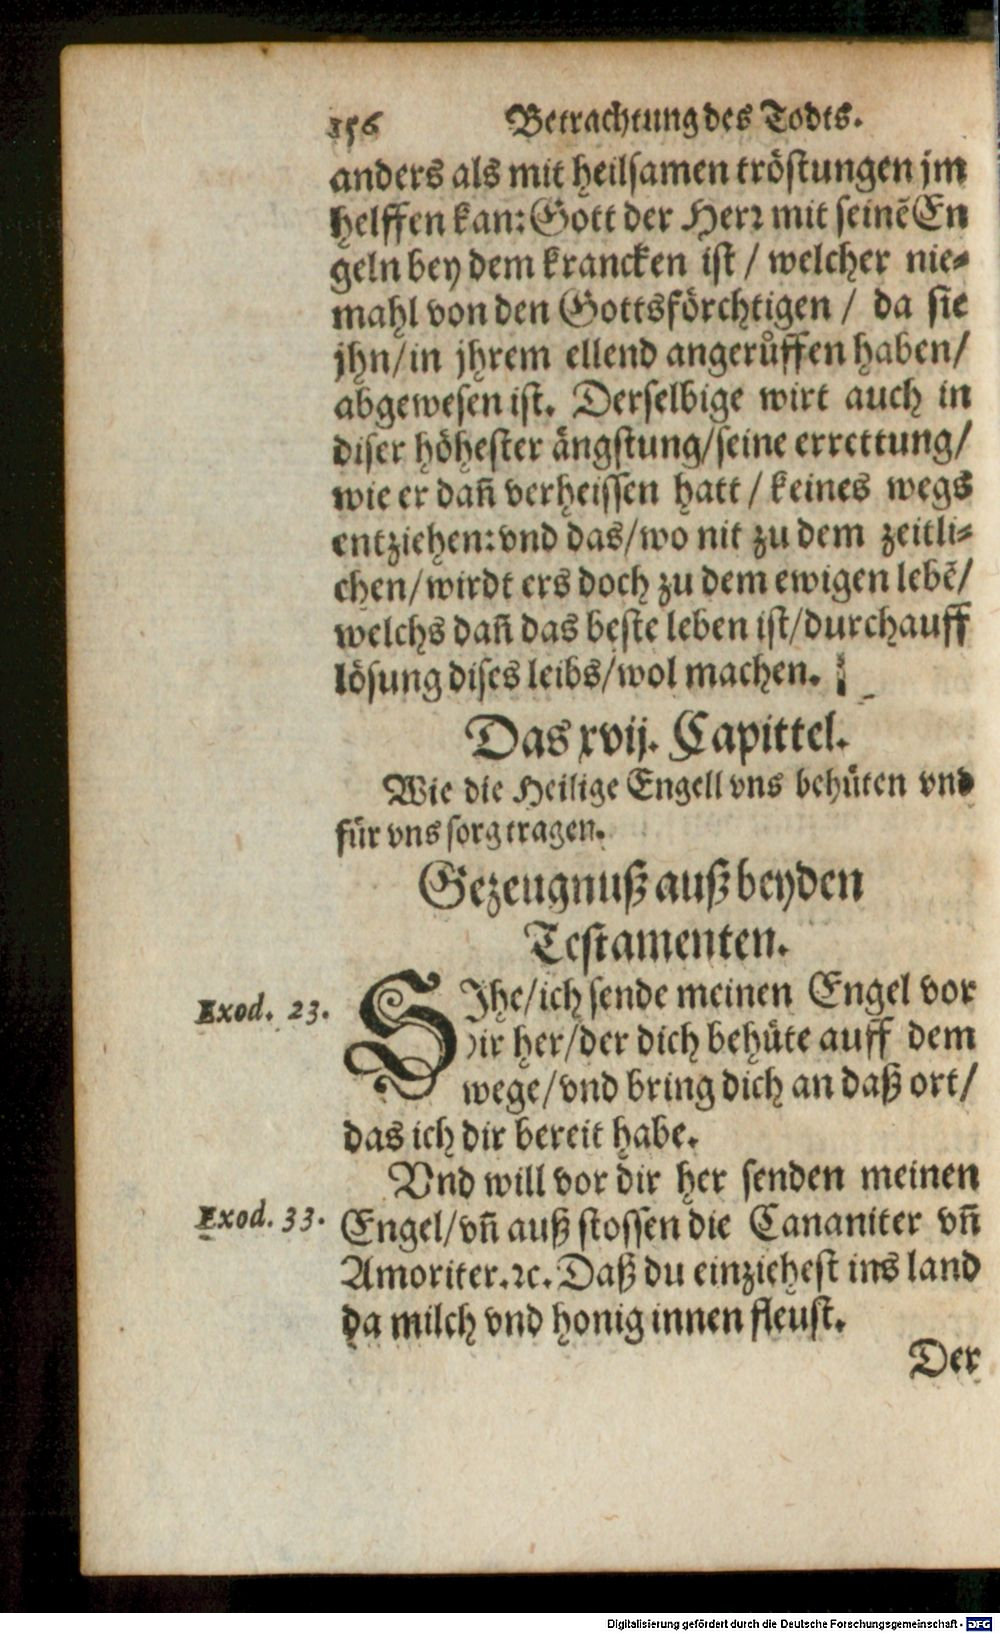 156 Betrachtung des Todts.
anders als mit heilsamen tröstungen jm
helffen kan: Gott der Herr mit seinē En
geln bey dem krancken ist / welcher nie-
mahl von den Gottsförchtigen / da sie
jhn/in jhrem ellend angerůffen haben/
abgewesen ist. Derselbige wirt auch in
diser höhester ängstung/seine errettung/
wie er dañ verheissen hatt / keines wegs
entziehen: vnd das/wo nit zu dem zeitli-
chen/wirdt ers doch zu dem ewigen lebē/
welchs dañ das beste leben ist/durchauff
lösung dises leibs/wol machen.
Das xvij. Capittel.
Wie die Heilige Engell vns behüten vnd
für vns sorg tragen.
Gezeugnuß auß beyden
Testamenten.
Exod. 23.
SIhe/ich sende meinen Engel vor
dir her/der dich behüte auff dem
wege/vnd bring dich an daß ort/
das ich dir bereit habe.
Vnd will vor dir her senden meinen
Exod. 33.
Engel/vñ auß stossen die Cananiter vñ
Amoriter.ꝛc. Daß du einziehest ins land
da milch vnd honig innen fleust.
Der
Digitalisierung gefördert durch die Deutsche Forschungsgemeinschaft - DFG